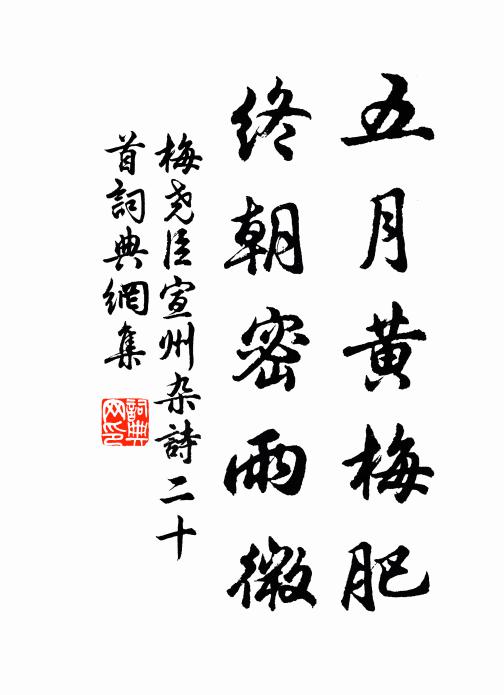 五月黄梅肥
終朝密雨微
梅尧臣宣州杂詩二十
首詞典網集
詞典
网印